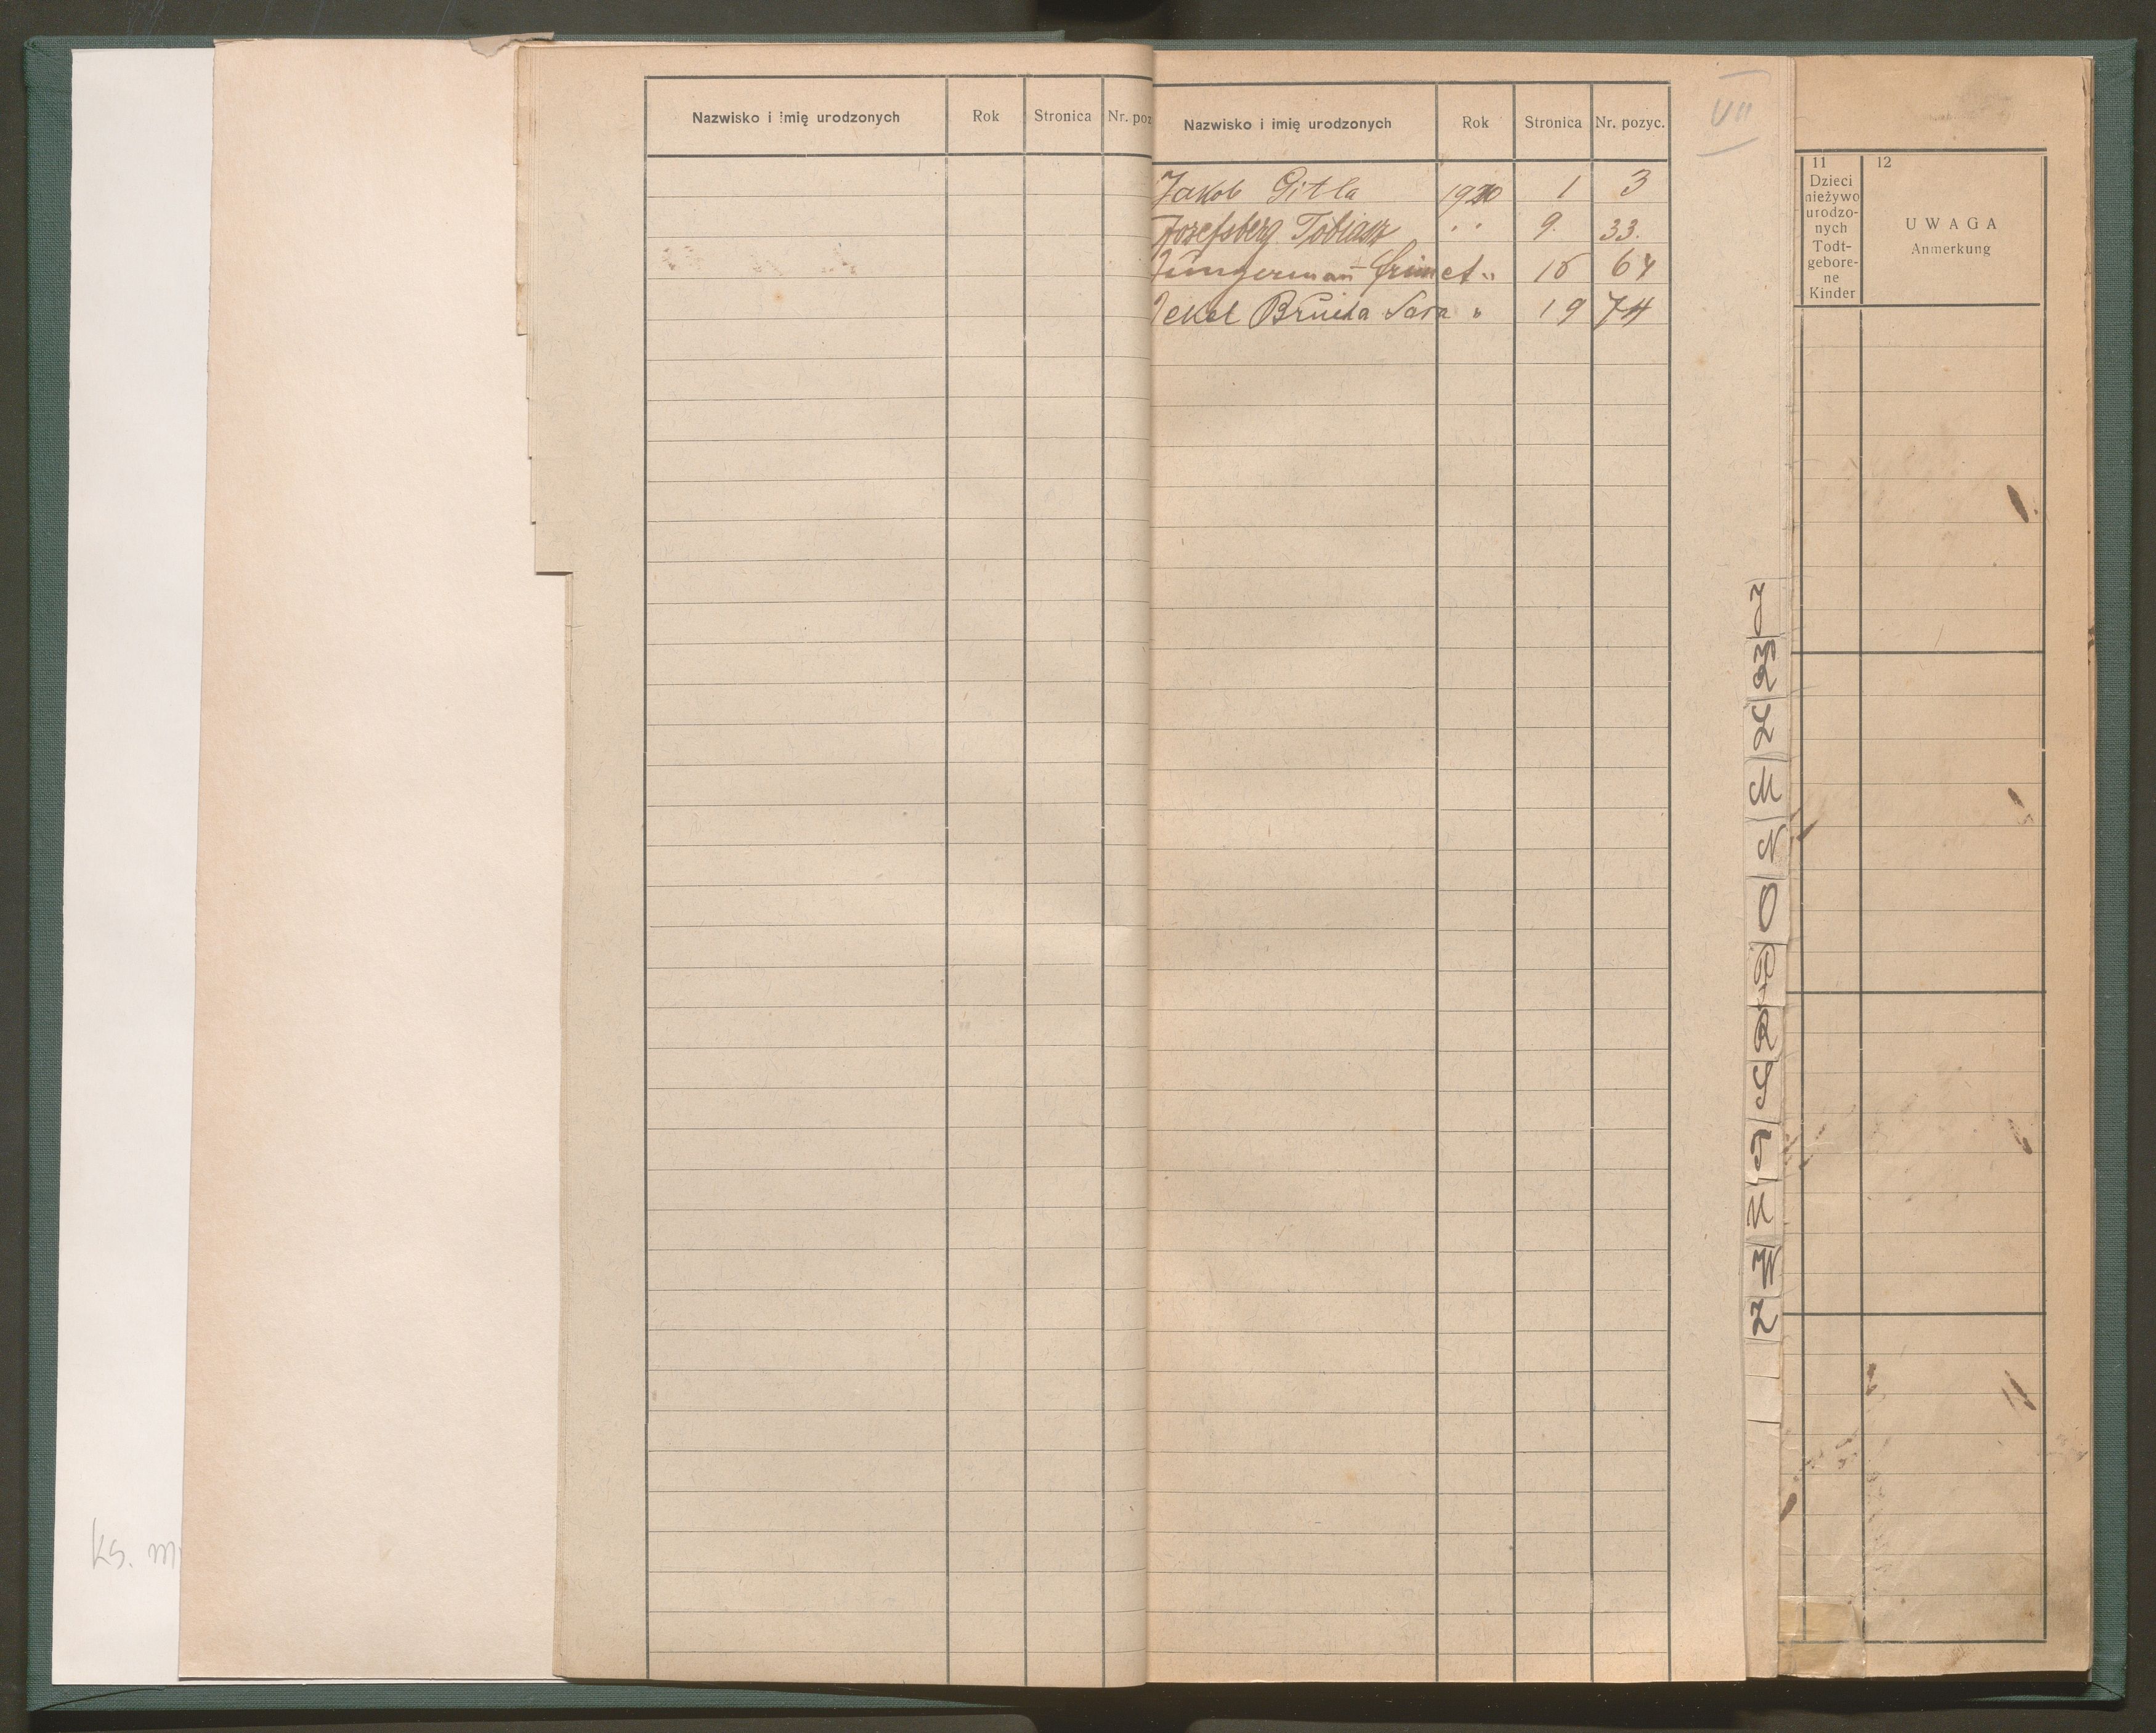 Nazwisko i imię urodzonych Rok Stronica Nr. poz
Nazwisko i imię urodzonych Rok Stronica Nr. pozyc.
VII
Jakob Gitla 1920 1 3
Josefsberg Tobiasz " 9. 33.
Jungermann " 16 64
Jekel Sara " 19 74
11
Dzieci
nieżywo
urodzo-
nych
Todt-
gebore-
ne
Kinder
12
UWAGA
Anmerkung
J
K
L
M
N
O
P
R
S
T
U
W
Z
ks. m